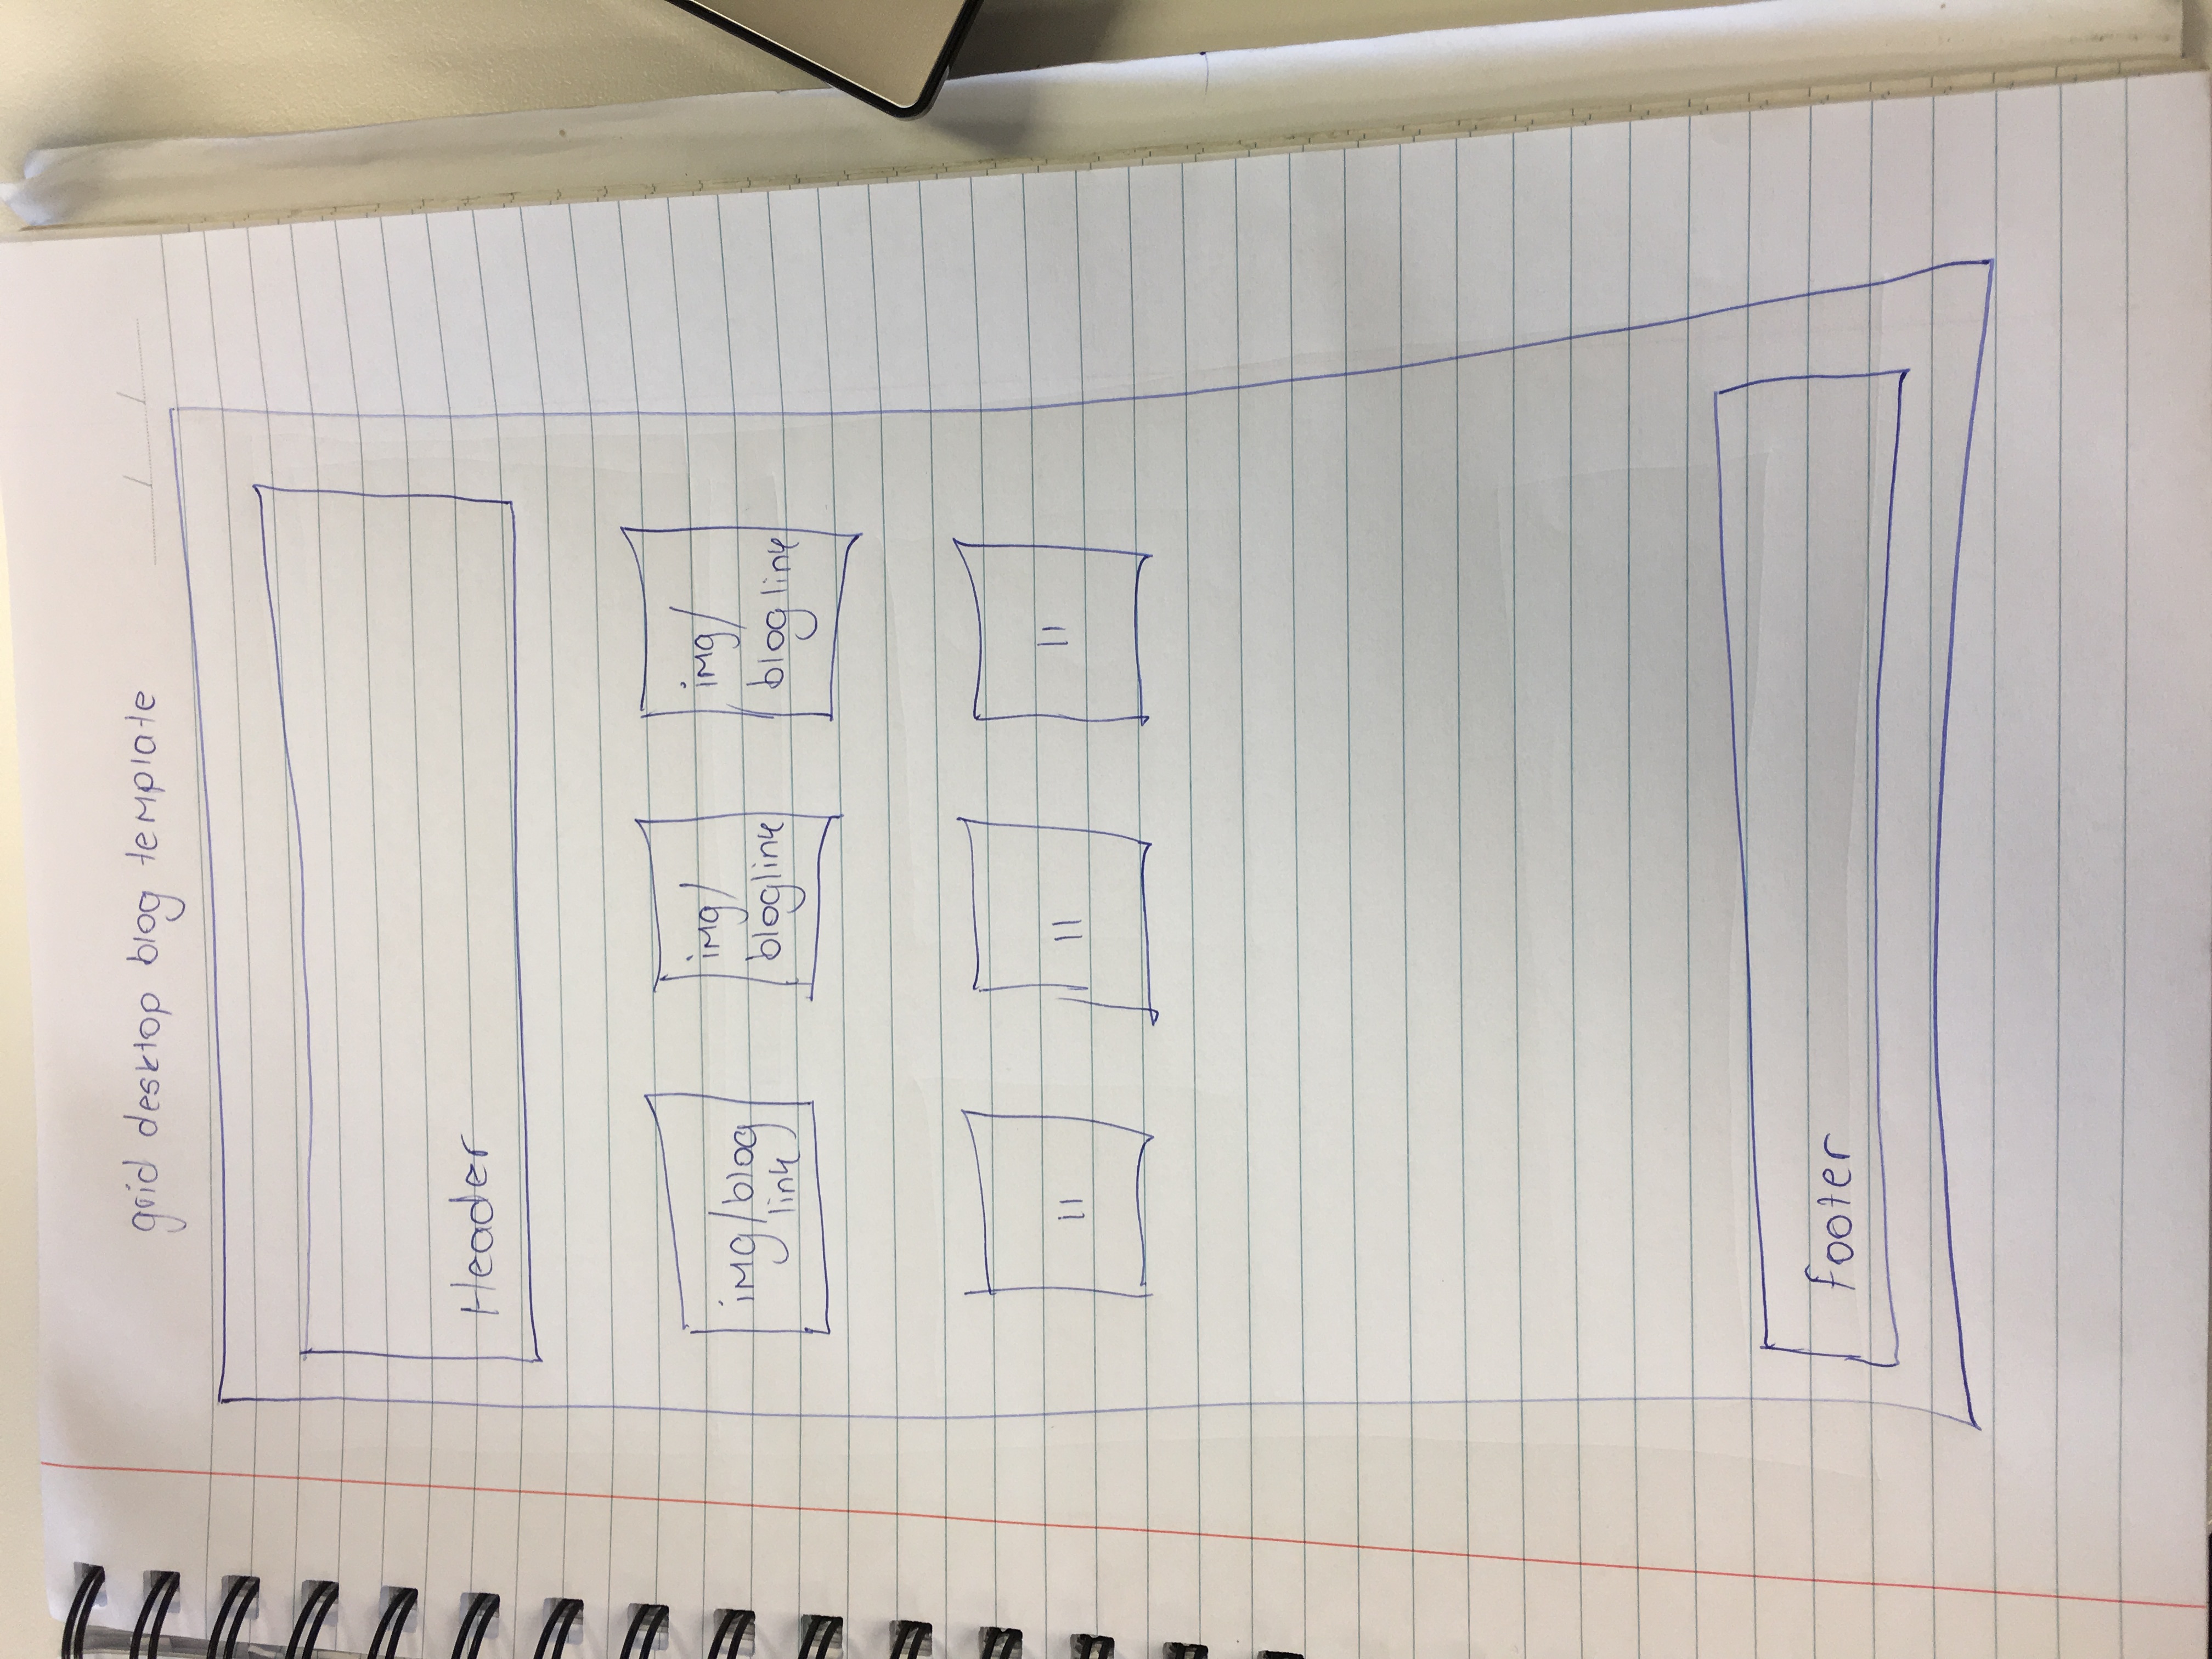 grid desktop blog template
/ /
Header
img/blog
link
img/
bloglink
img/
blog link
11
11
11
footer